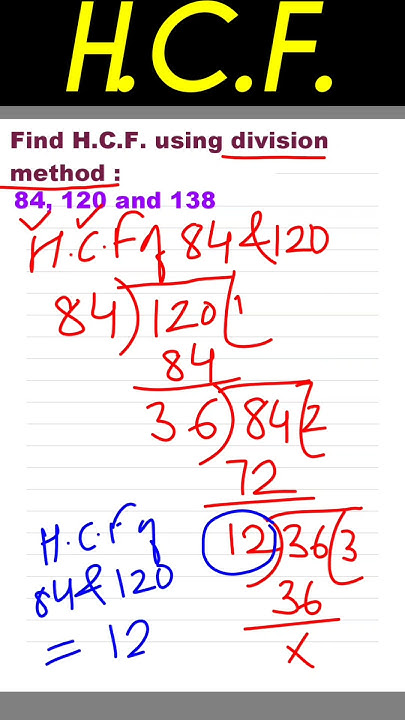 H.C.F.
Find H.C.F. using division
method :
84, 120 and 138
H.C.F of 84 & 120
84) 120 (1
84
36) 84 (2
72
12) 36 (3
36
x
H.C.F of
84 & 120
= 12